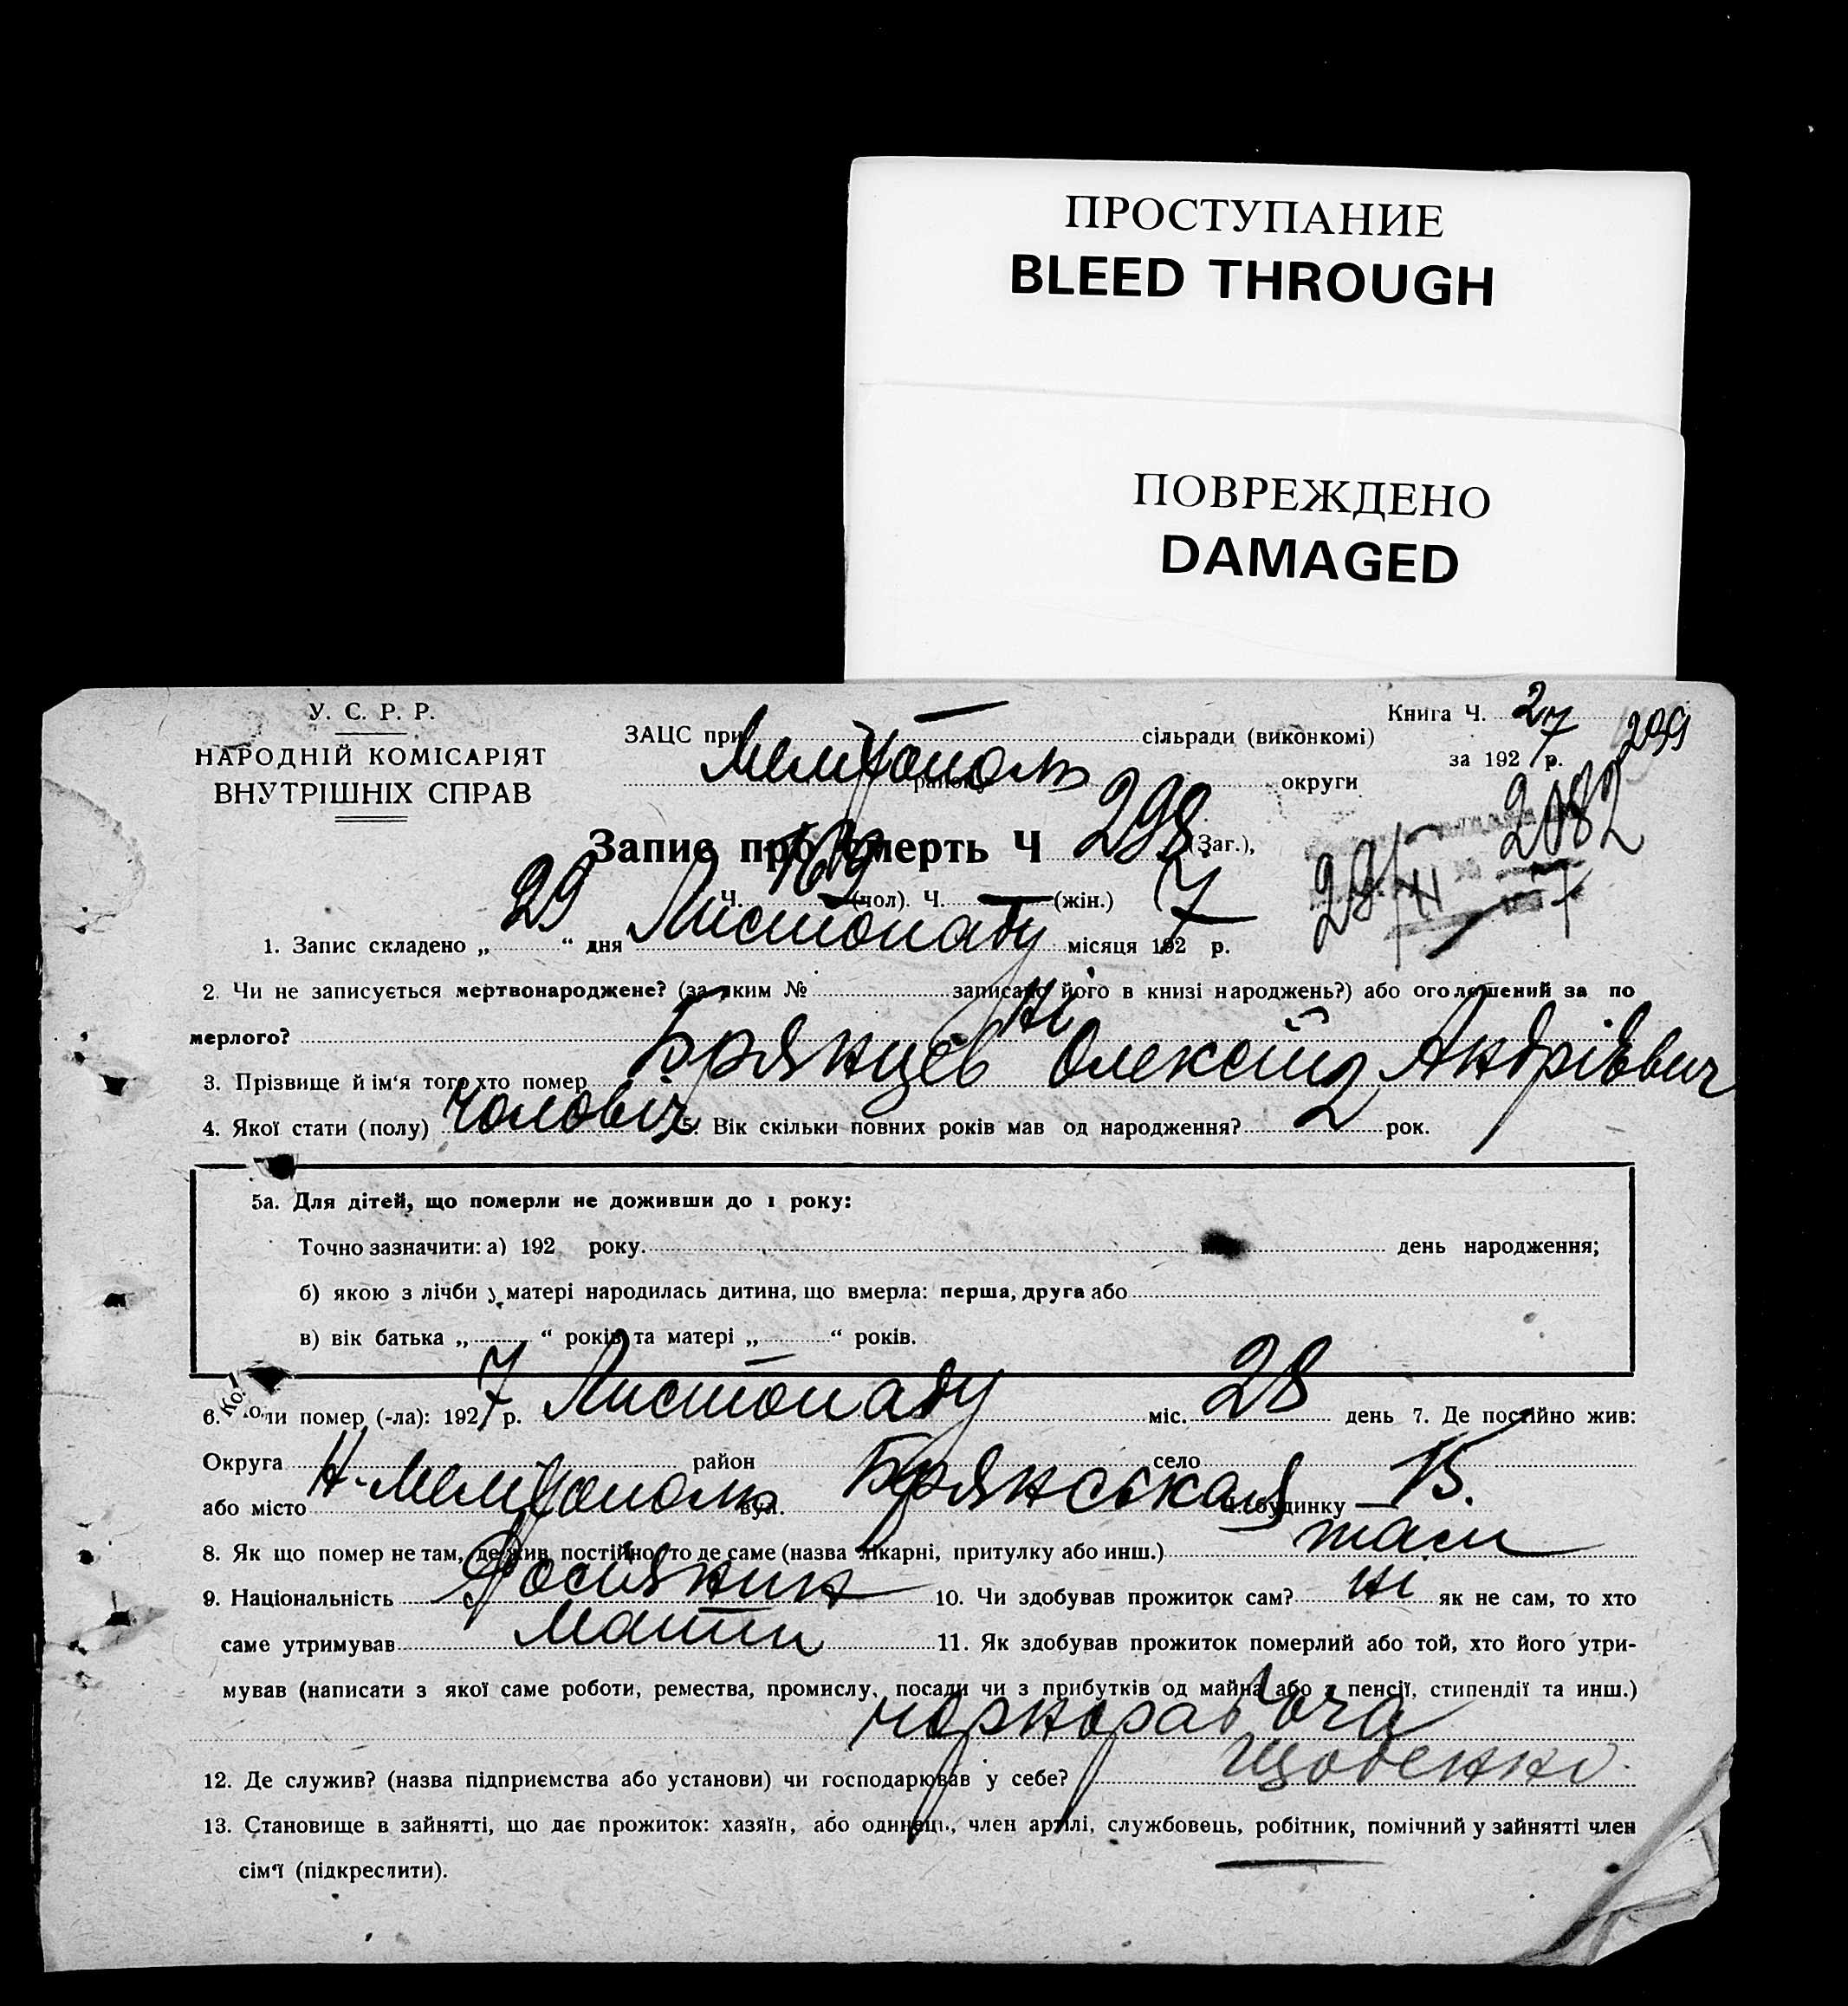 ПРОСТУПАНИЕ
BLEED THROUGH
ПОВРЕЖДЕНО
DAMAGED
У. С. Р. Р.
НАРОДНІЙ КОМІСАРІЯТ
ВНУТРІШНІХ СПРАВ
Книга Ч. 2
за 1927 р.
299
ЗАЦС при сільради (виконкомі)
Мелітополь району округи
Запис про смерть Ч 298 (Заг.),
Ч. 169 (чол). Ч. — (жін.)
2082
29/XI 7
1. Запис складено „29“ дня Листопаду місяця 1927 р.
2. Чи не записується мертвонароджене? (за яким № записано його в книзі народжень?) або оголошений за по
мерлого? ні
3. Прізвище й ім‘я того хто помер Брянцев Олексій Андрієвич
4. Якої стати (полу) чоловіч 5. Вік скільки повних років мав од народження? 2 рок.
5а. Для дітей, що померли не доживши до 1 року:
Точно зазначити: а) 192 року. день народження;
б) якою з лічби у матері народилась дитина, що вмерла: перша, друга або
в) вік батька „ “ років та матері „ “ років.
6. Коли помер (-ла): 1927 р. Листопаду міс. 28 день 7. Де постійно жив:
Округа район село
або місто Н-Мелітополь вул. Брянськая Ч. будинку — 15.
8. Як що помер не там, де жив постійно, то де саме (назва лікарні, притулку або инш.) там
9. Національність Росіянин 10. Чи здобував прожиток сам? ні як не сам, то хто
саме утримував Матти 11. Як здобував прожиток померлий або той, хто його утри-
мував (написати з якої саме роботи, ремества, промислу, посади чи з прибутків од майна або з пенсії, стипендії та инш.)
чорнорабоча
12. Де служив? (назва підприємства або установи) чи господарював у себе? щоденно
13. Становище в зайнятті, що дає прожиток: хазяїн, або одинець, член артілі, службовець, робітник, помічний у зайнятті член
сім‘ї (підкреслити).